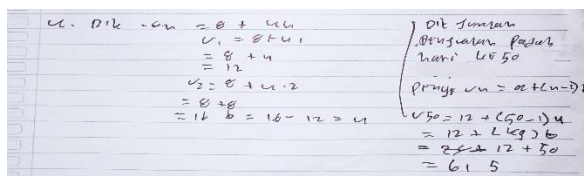 4. Dik . Un = 8 + 4n
U1 = 8 + 4 1
= 8 + 4
= 12
U2 = 8 + 4 . 2
= 8 + 8
= 16 b = 16 - 12 = 4
Dit Jumlah
Penjualan Pasah
hari ke 50
Un = a + (n - 1)
U50 = 12 + (50 - 1) 4
= 12 + (49) 6
= 12 + 50
= 61 5